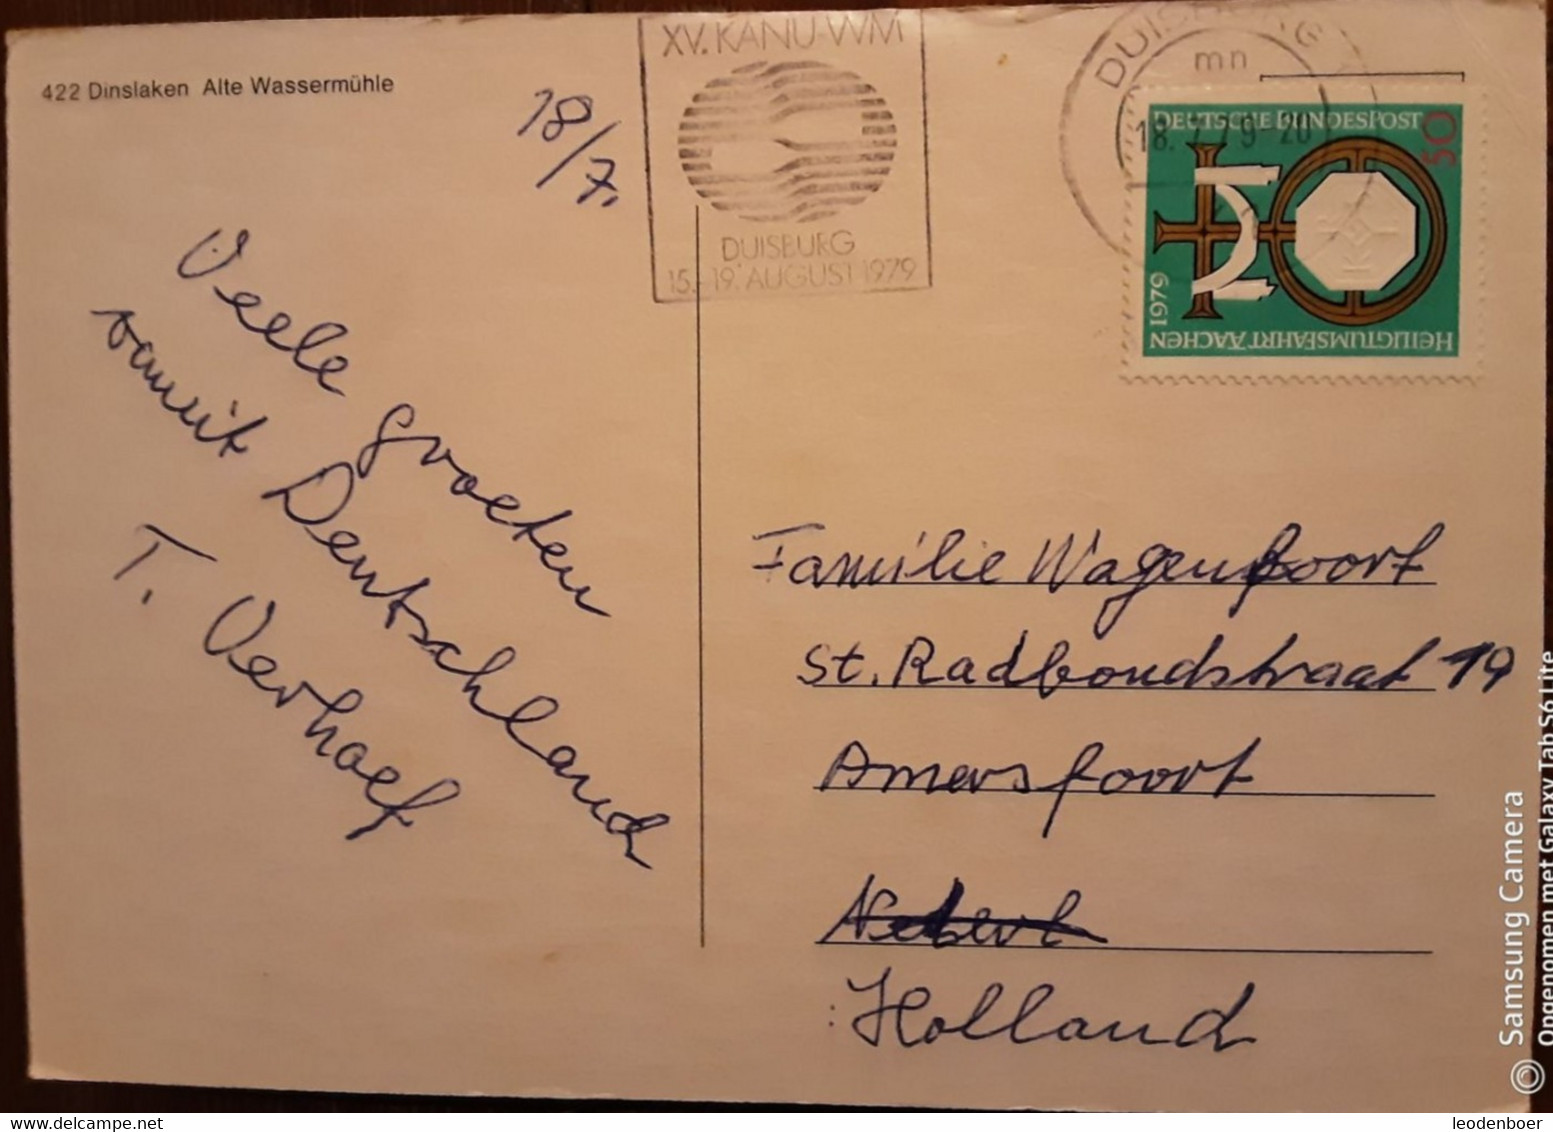 422 Dinslaken Alte Wassermühle
18/7.
XV. KANU-WM
DUISBURG
15.-19. AUGUST 1979
DUISBURG
mn
18.7.79-20
DEUTSCHE BUNDESPOST
50
50
1979
HEILIGTUMSFAHRT AACHEN
Veele groeten
vanuit Deutschland
T. Verhoef
Familie Wagenfoort
St. Radboudstraat 19
Amersfoort
Holland
© Samsung Camera
Opgenomen met Galaxy Tab S6 Lite
leodenboer